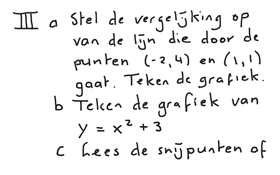 III a Stel de vergelijking op
van de lijn die door de
punten (-2,4) en (1,1)
gaat. Teken de grafiek.
b Teken de grafiek van
y = x² + 3
c Lees de snijpunten af